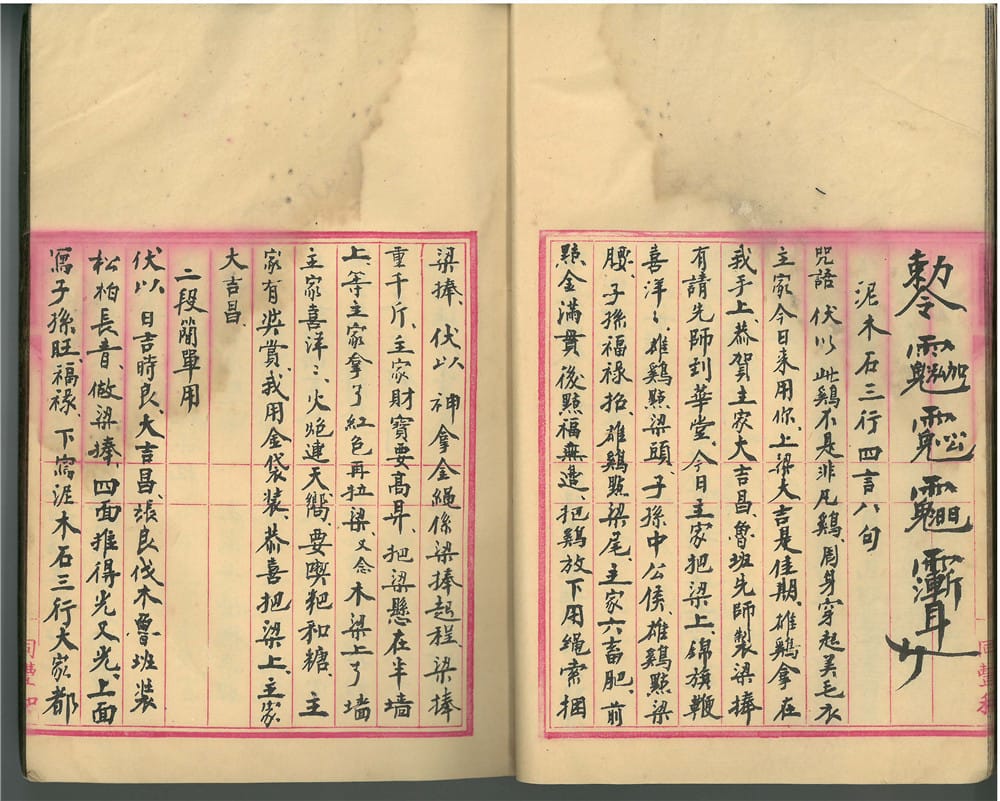 勅令
泥木石三行四言八句
咒語 伏以 此鷄不是非凡鷄、周身穿起美毛衣
主家今日来用你、上梁大吉是佳期、雄鷄拿在
我手上、恭賀主家大吉昌、魯班先師製梁捧
有請先師到華堂、今日主家把梁上、錦旗鞭
喜洋〻、雄鷄點梁頭 子孫中公侯、雄鷄點梁
腰、子孫福禄招、雄鷄點梁尾、主家六畜肥、前
點金滿貫後點福無邊、把鷄放下用绳索捆
梁捧、伏以 神拿金繩係梁捧起程、梁捧
重千斤、主家財寶要髙昇、把梁懸在半墻
上、等主家拿了紅色再拉梁、又念 木梁上了墻
主家喜洋〻、火炮連天嚮、要喫粑和糖、主
家有奖賞、我用金袋装、恭喜把梁上、主家
大吉昌、
二段簡單用
伏以 日吉時良、大吉昌、張良伐木魯班装
松柏長青、做梁捧、四面推得光又光、上面
寫子孫旺、福禄、下寫泥木石三行大家都